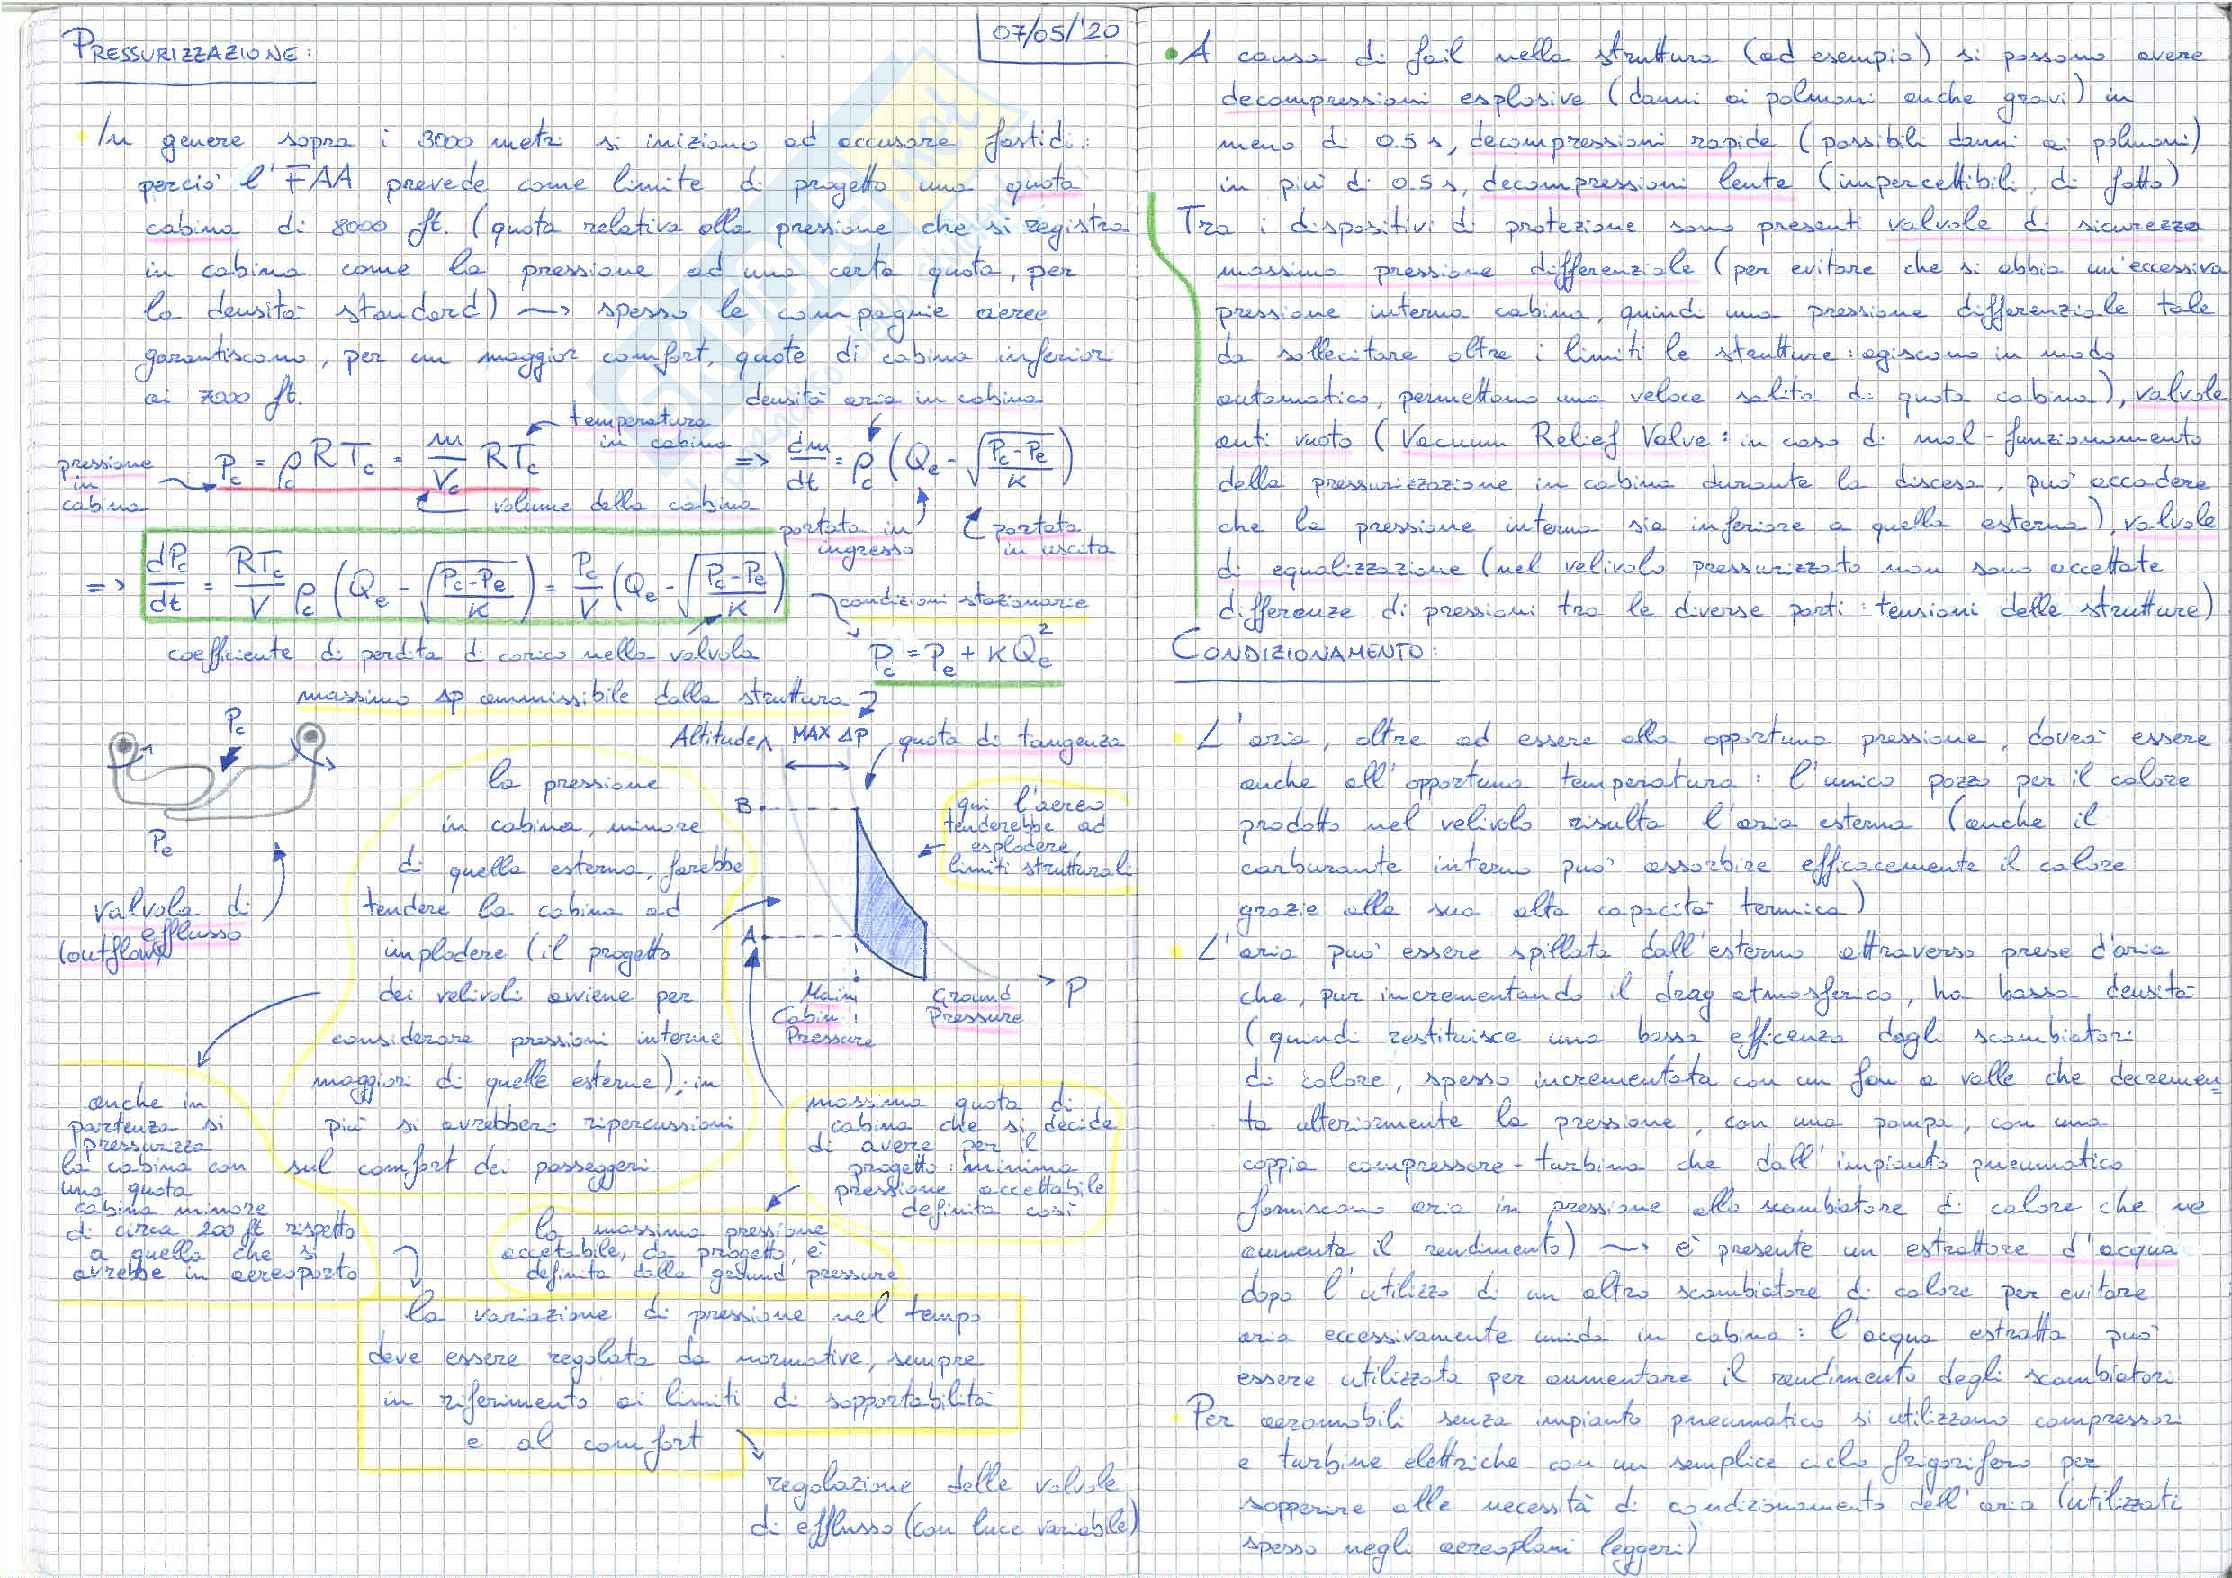 07/05/'20
PRESSURIZZAZIONE:
In genere sopra i 3000 metri si iniziano ad accusare fastidi:
perciò l'FAA prevede come limite di progetto una quota
cabina di 8000 ft. (quota relativa alla pressione che si registra
in cabina come la pressione ad una certa quota, per
la densità standard) ⇝ spesso le compagnie aeree
garantiscono, per un maggior comfort, quote di cabina inferiori
ai 7000 ft.
densità aria in cabina
temperatura
in cabina
pressione
in
cabina
Pc = ρc RTc = m/Vc RTc => dm/dt = ρc (Qe - √((Pc-Pe)/K))
volume della cabina
portata in
ingresso
portata
in uscita
=> dPc/dt = RTc/V ρc (Qe - √((Pc-Pe)/K)) = Pc/V (Qe - √((Pc-Pe)/K))
condizioni stazionarie
coefficiente di perdita di carico nella valvola
Pc = Pe + KQe²
massimo Δp ammissibile dalla struttura
Pc
Pe
valvola di
efflusso
(outflow)
Altitude
MAX ΔP
quota di tangenza
B
A
P
Main
Cabin
Pressure
Ground
Pressure
qui l'aereo
tenderebbe ad
esplodere,
limiti strutturali
la pressione
in cabina, minore
di quella esterna, farebbe
tendere la cabina ad
implodere (il progetto
dei velivoli avviene per
considerare pressioni interne
maggiori di quelle esterne); in
più si avrebbero ripercussioni
sul comfort dei passeggeri
anche in
partenza si
pressurizza
la cabina con
una quota
cabina minore
di circa 200 ft rispetto
a quella che si
avrebbe in aereoporto
massima quota di
cabina che si decide
di avere per il
progetto: minima
pressione accettabile
definita così
la massima pressione
accetabile, da progetto, è
definita dalla ground pressure
la variazione di pressione nel tempo
deve essere regolata da normative, sempre
in riferimento ai limiti di sopportabilità
e al comfort
regolazione delle valvole
di efflusso (con luce variabile)
A causa di fail nella struttura (ad esempio) si possono avere
decompressioni esplosive (danni ai polmoni anche gravi) in
meno di 0.5 s, decompressioni rapide (possibili danni ai polmoni)
in più di 0.5 s, decompressioni lente (impercettibili, di fatto)
Tra i dispositivi di protezione sono presenti valvole di sicurezza
massima pressione differenziale (per evitare che si abbia un'eccessiva
pressione interna cabina, quindi una pressione differenziale tale
da sollecitare oltre i limiti le strutture: agiscono in modo
automatico, permettono una veloce salita di quota cabina), valvole
anti vuoto (Vacuum Relief Valve: in caso di mal-funzionamento
della pressurizzazione in cabina durante la discesa, può accadere
che la pressione interna sia inferiore a quella esterna), valvole
di equalizzazione (nel velivolo pressurizzato non sono accettate
differenze di pressioni tra le diverse parti: tensioni delle strutture)
CONDIZIONAMENTO:
L'aria, oltre ad essere alla opportuna pressione, dovrà essere
anche all'opportuna temperatura: l'unico pozzo per il calore
prodotto nel velivolo risulta l'aria esterna (anche il
carburante interno può assorbire efficacemente il calore
grazie alla sua alta capacità termica)
L'aria può essere spillata dall'esterno attraverso prese d'aria
che, pur incrementando il drag atmosferico, ha bassa densità
(quindi restituisce una bassa efficenza dagli scambiatori
di calore, spesso incrementata con un fan a valle che decremen=
ta ulteriormente la pressione, con una pompa, con una
coppia compressore-turbina che dall'impianto pneumatico
forniscono aria in pressione allo scambiatore di calore che ne
aumenta il rendimento) ⇝ è presente un estrattore d'acqua
dopo l'utilizzo di un altro scambiatore di calore per evitare
aria eccessivamente umida in cabina: l'acqua estratta può
essere utilizzata per aumentare il rendimento degli scambiatori
Per aeromobili senza impianto pneumatico si utilizzano compressori
e turbine elettriche con un semplice ciclo frigorifero per
sopperire alle necessità di condizionamento dell'aria (utilizzati
spesso negli aereoplani leggeri)